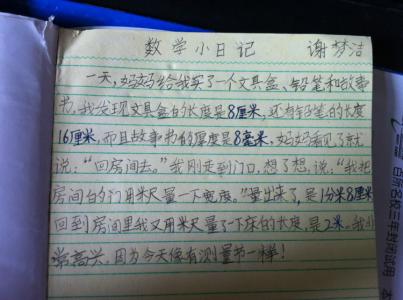 数学小日记 谢梦洁
一天,妈妈给我买了一个文具盒、铅笔和故事
书,我发现文具盒的长度是8厘米,还有铅笔的长度
16厘米,而且故事书的厚度是8毫米,妈妈看见了就
说:“回房间去。”我刚走到门口,想了想,说:“我把
房间的门用米尺量一下宽度。”量出来了,是1分米8厘米
回到房间里我又用米尺量了一下床的长度,是2米。我非
常高兴,因为今天像有测量节一样!
百所名校三年封闭试用